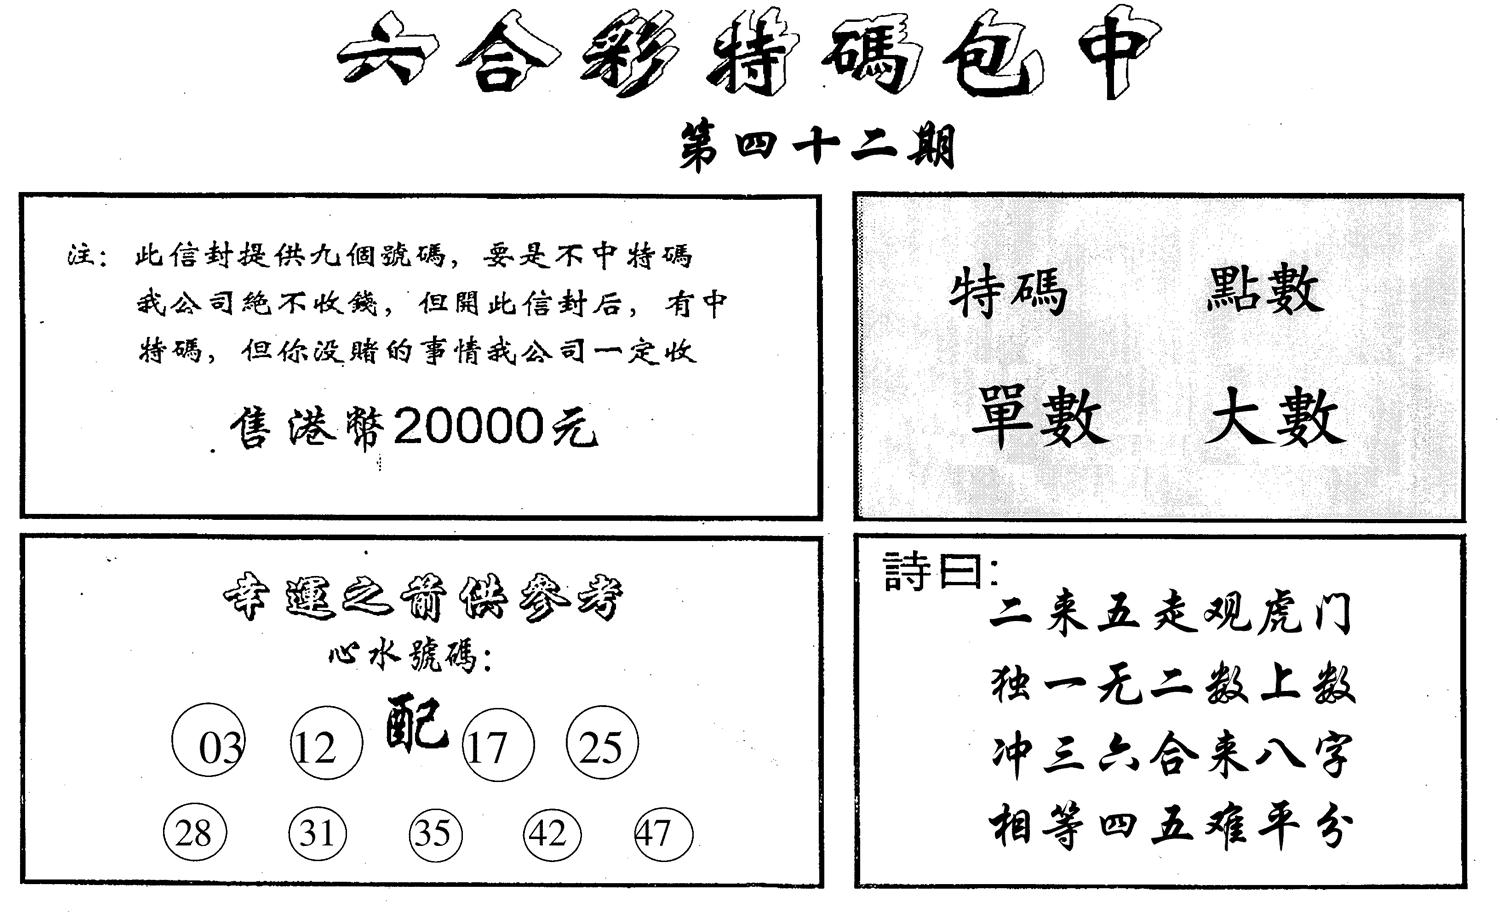 六合彩特碼包中
第四十二期
注：此信封提供九個號碼，要是不中特碼
我公司絕不收錢，但開此信封后，有中
特碼，但你没賭的事情我公司一定收
售港幣20000元
特碼 點數
單數 大數
幸運之箭供參考
心水號碼：
03 12 配 17 25
28 31 35 42 47
詩曰：
二来五走观虎门
独一无二数上数
冲三六合来八字
相等四五难平分